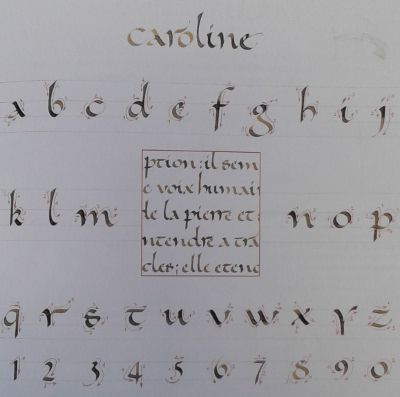 caroline
a b c d e f g h i j
k l m
ption; il sem
e voix humai
de la pierre et
ntendre a tra
cles; elle etend
n o p
q r s t u v w x y z
1 2 3 4 5 6 7 8 9 0